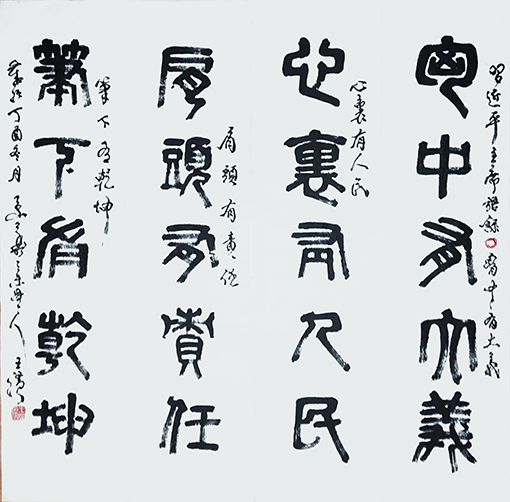 習近平主席語錄 胸中有大義
匈中有大義
心裏有人民
心裏有人民
肩頭有責任
肩頭有責任
筆下有乾坤
筆下有乾坤
丁酉冬月